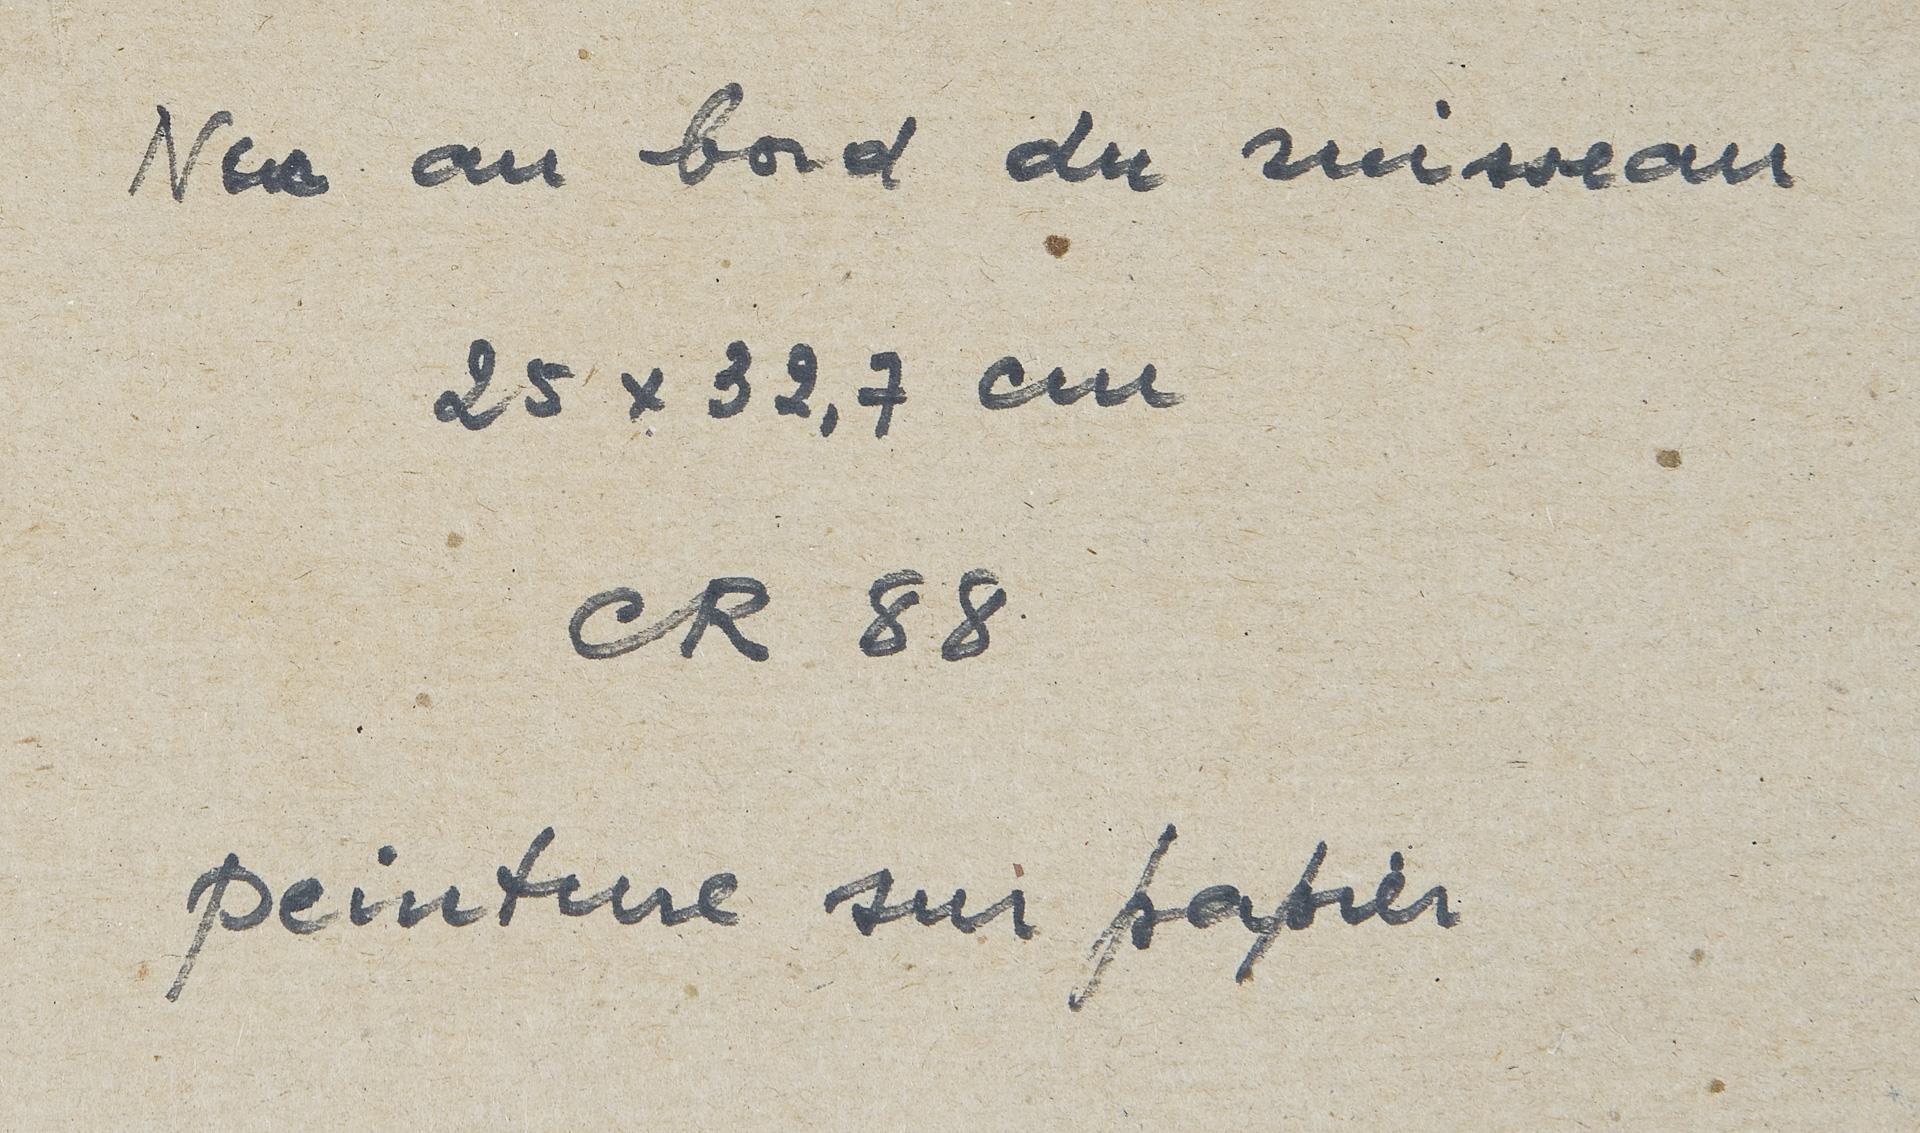 Nue au bord du ruisseau
25 x 32,7 cm
CR 88
peinture sur papier